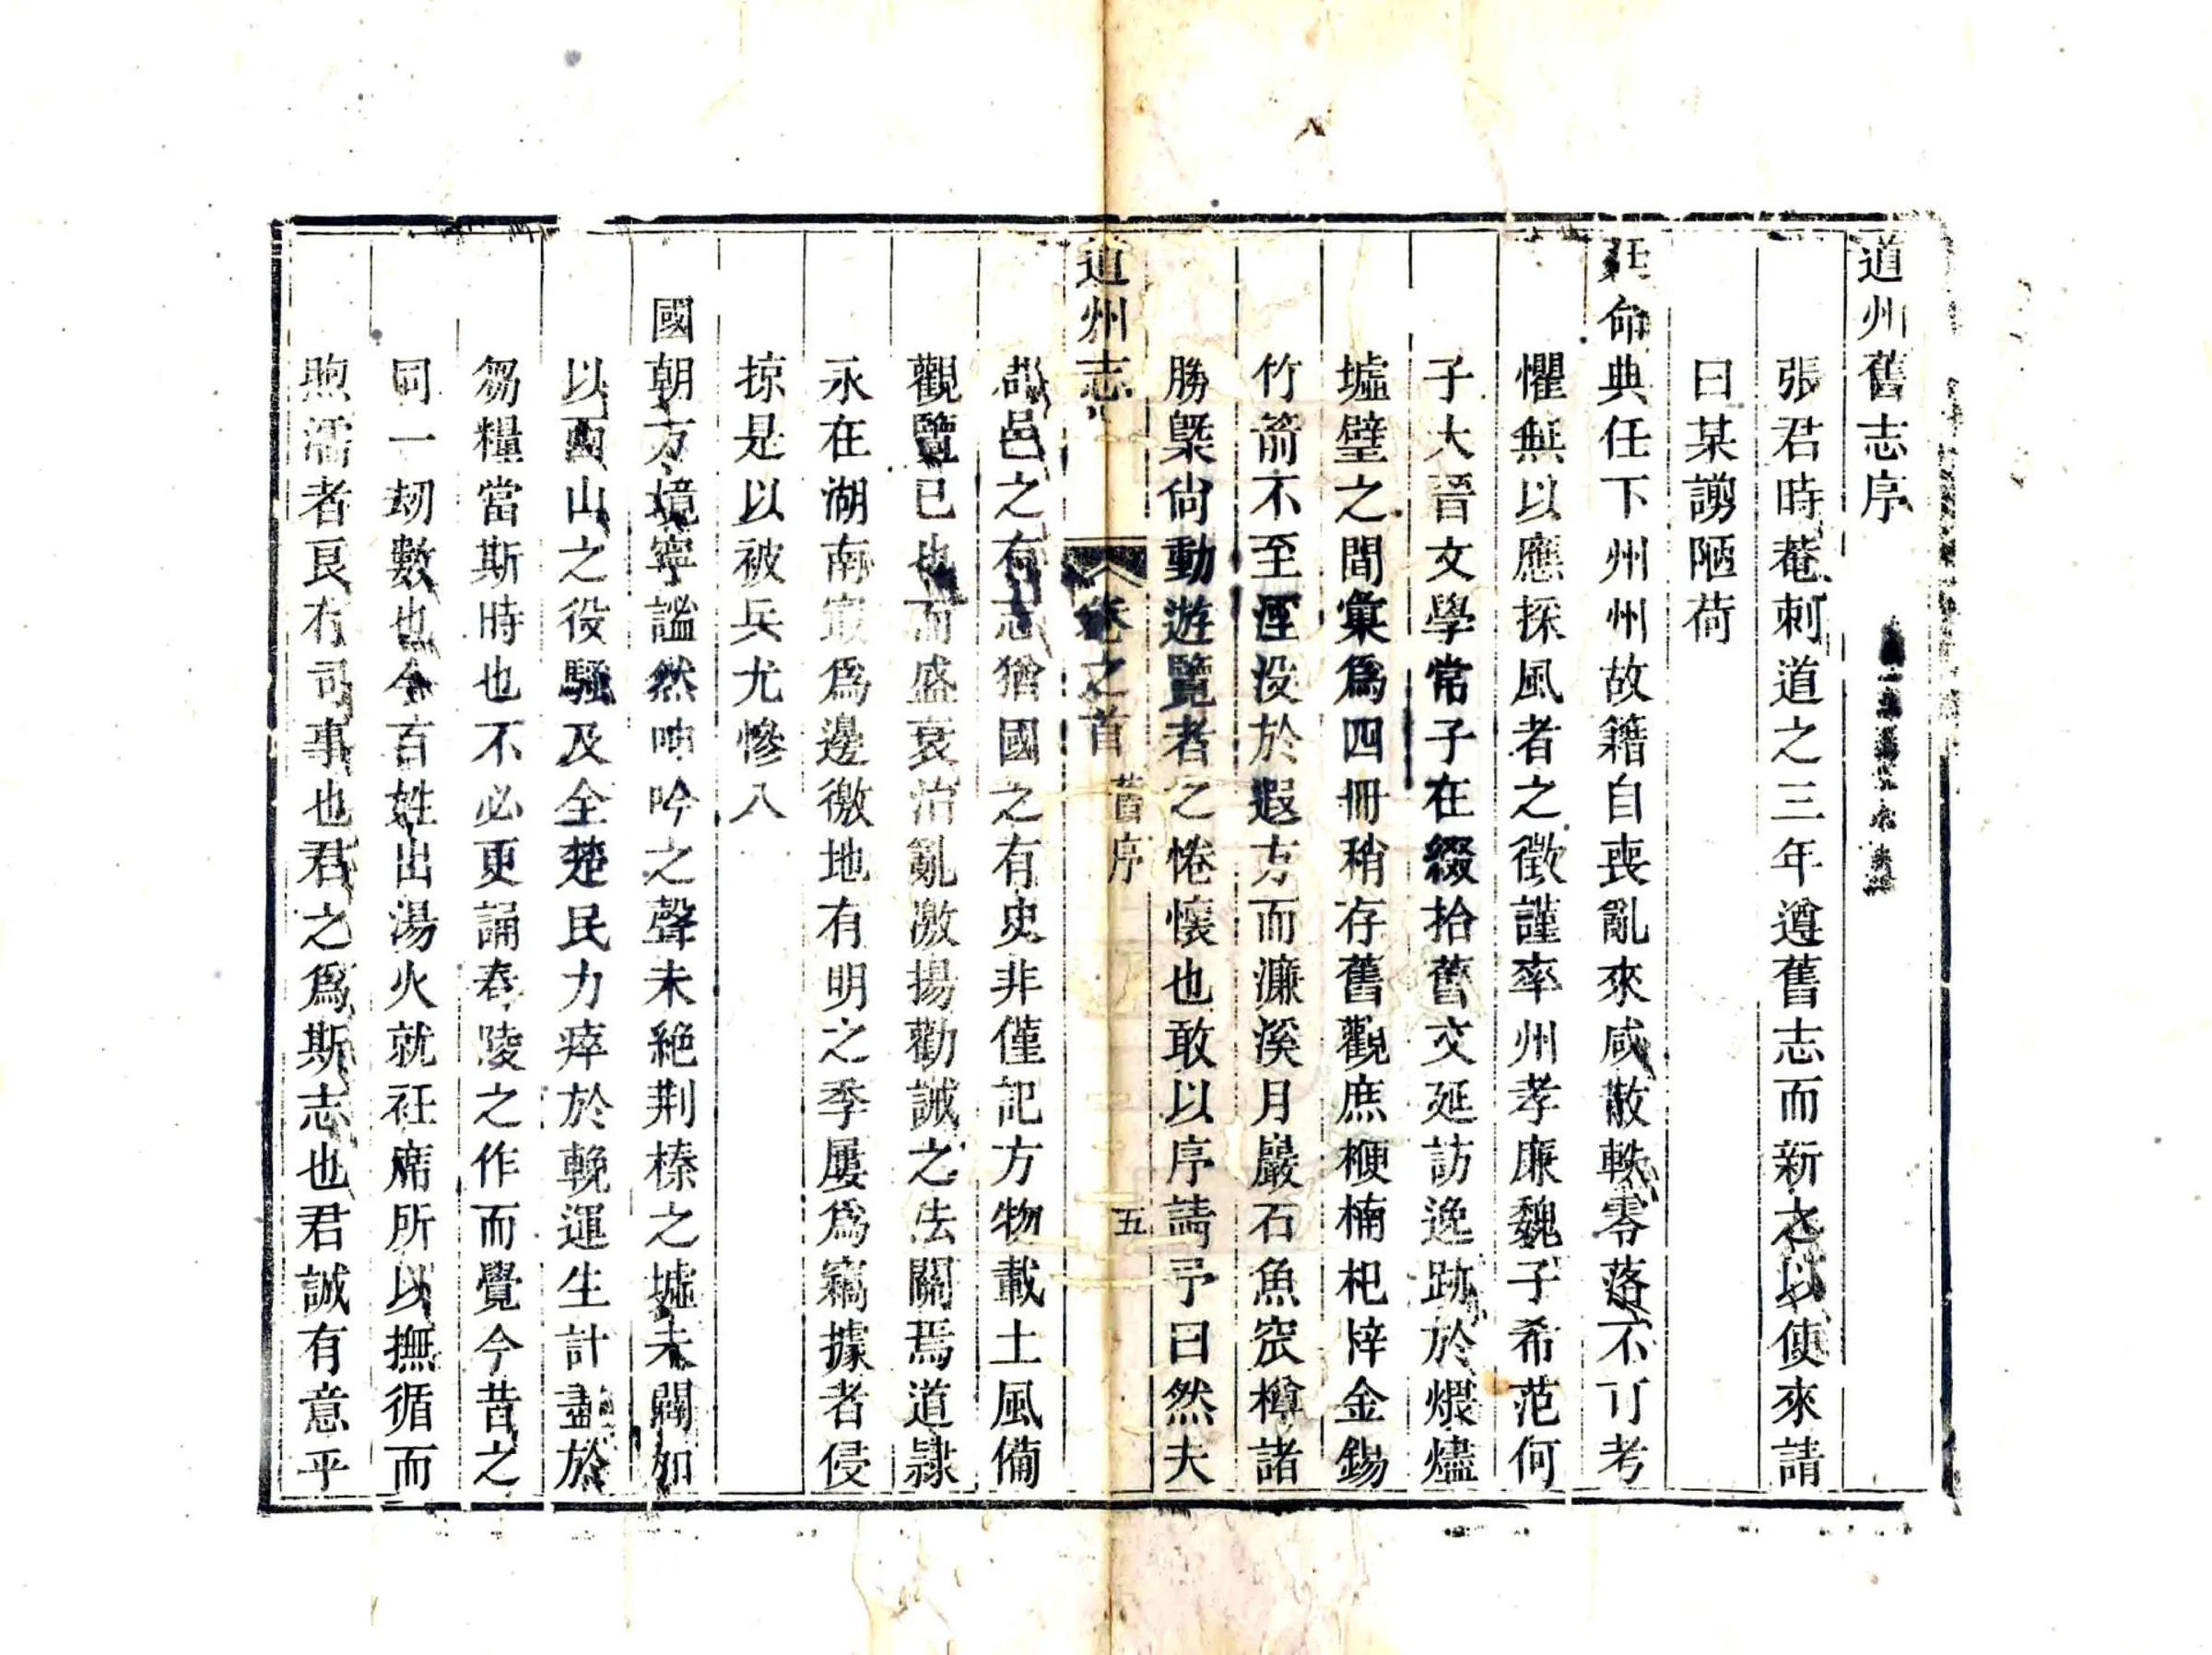 道州舊志序
張君時菴刺道之三年遵舊志而新之以使來請
曰某謭陋荷
廷命典任下州州故籍自喪亂來咸散軼零落不可考
懼無以應採風者之徵謹率州孝廉魏子希范何
子大晉文學常子在綴拾舊文延訪逸跡於煨燼
墟壁之間彙爲四冊稍存舊觀庶楩楠杞梓金錫
竹箭不至湮没於遐方而濂溪月巖石魚窊樽諸
勝槩尙動遊覽者之惓懷也敢以序請予曰然夫
道州志
卷之首
舊序
五
郡邑之有志猶國之有史非僅記方物載土風備
觀覽已也而盛衰治亂激揚勸誡之法關焉道隷
永在湖南㝡爲邊徼地有明之季屢爲竊據者侵
掠是以被兵尤慘入
國朝方境寧謐然呻吟之聲未絶荆榛之墟未闢如
以西山之役騷及全楚民力瘁於輓運生計盡於
芻糧當斯時也不必更誦舂陵之作而覺今昔之
同一刼數也今百姓出湯火就袵席所以撫循而
煦濡者良有司事也君之爲斯志也君誠有意乎